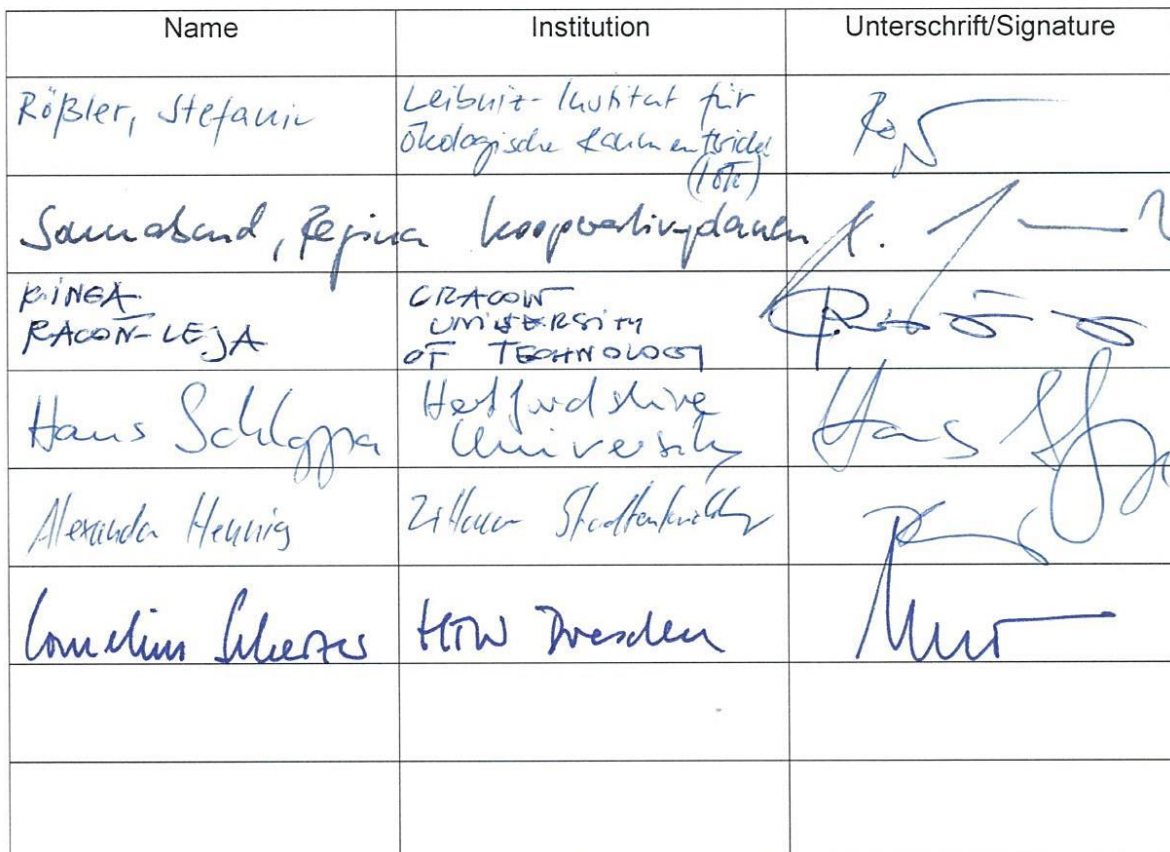 Name Institution Unterschrift/Signature
Rößler, Stefanie Leibniz-Institut für
ökologische Raumentwickl
(IÖR)
Sonnabend, Regina
KINGA CRACOW
RACOŃ-LEJA UNIVERSITY
OF TECHNOLOGY
Hans Schlappa Hertfordshire
University Hans
Alexander Hennig Zittauer Stadtentwicklung
Cornelius Scherzer HTW Dresden